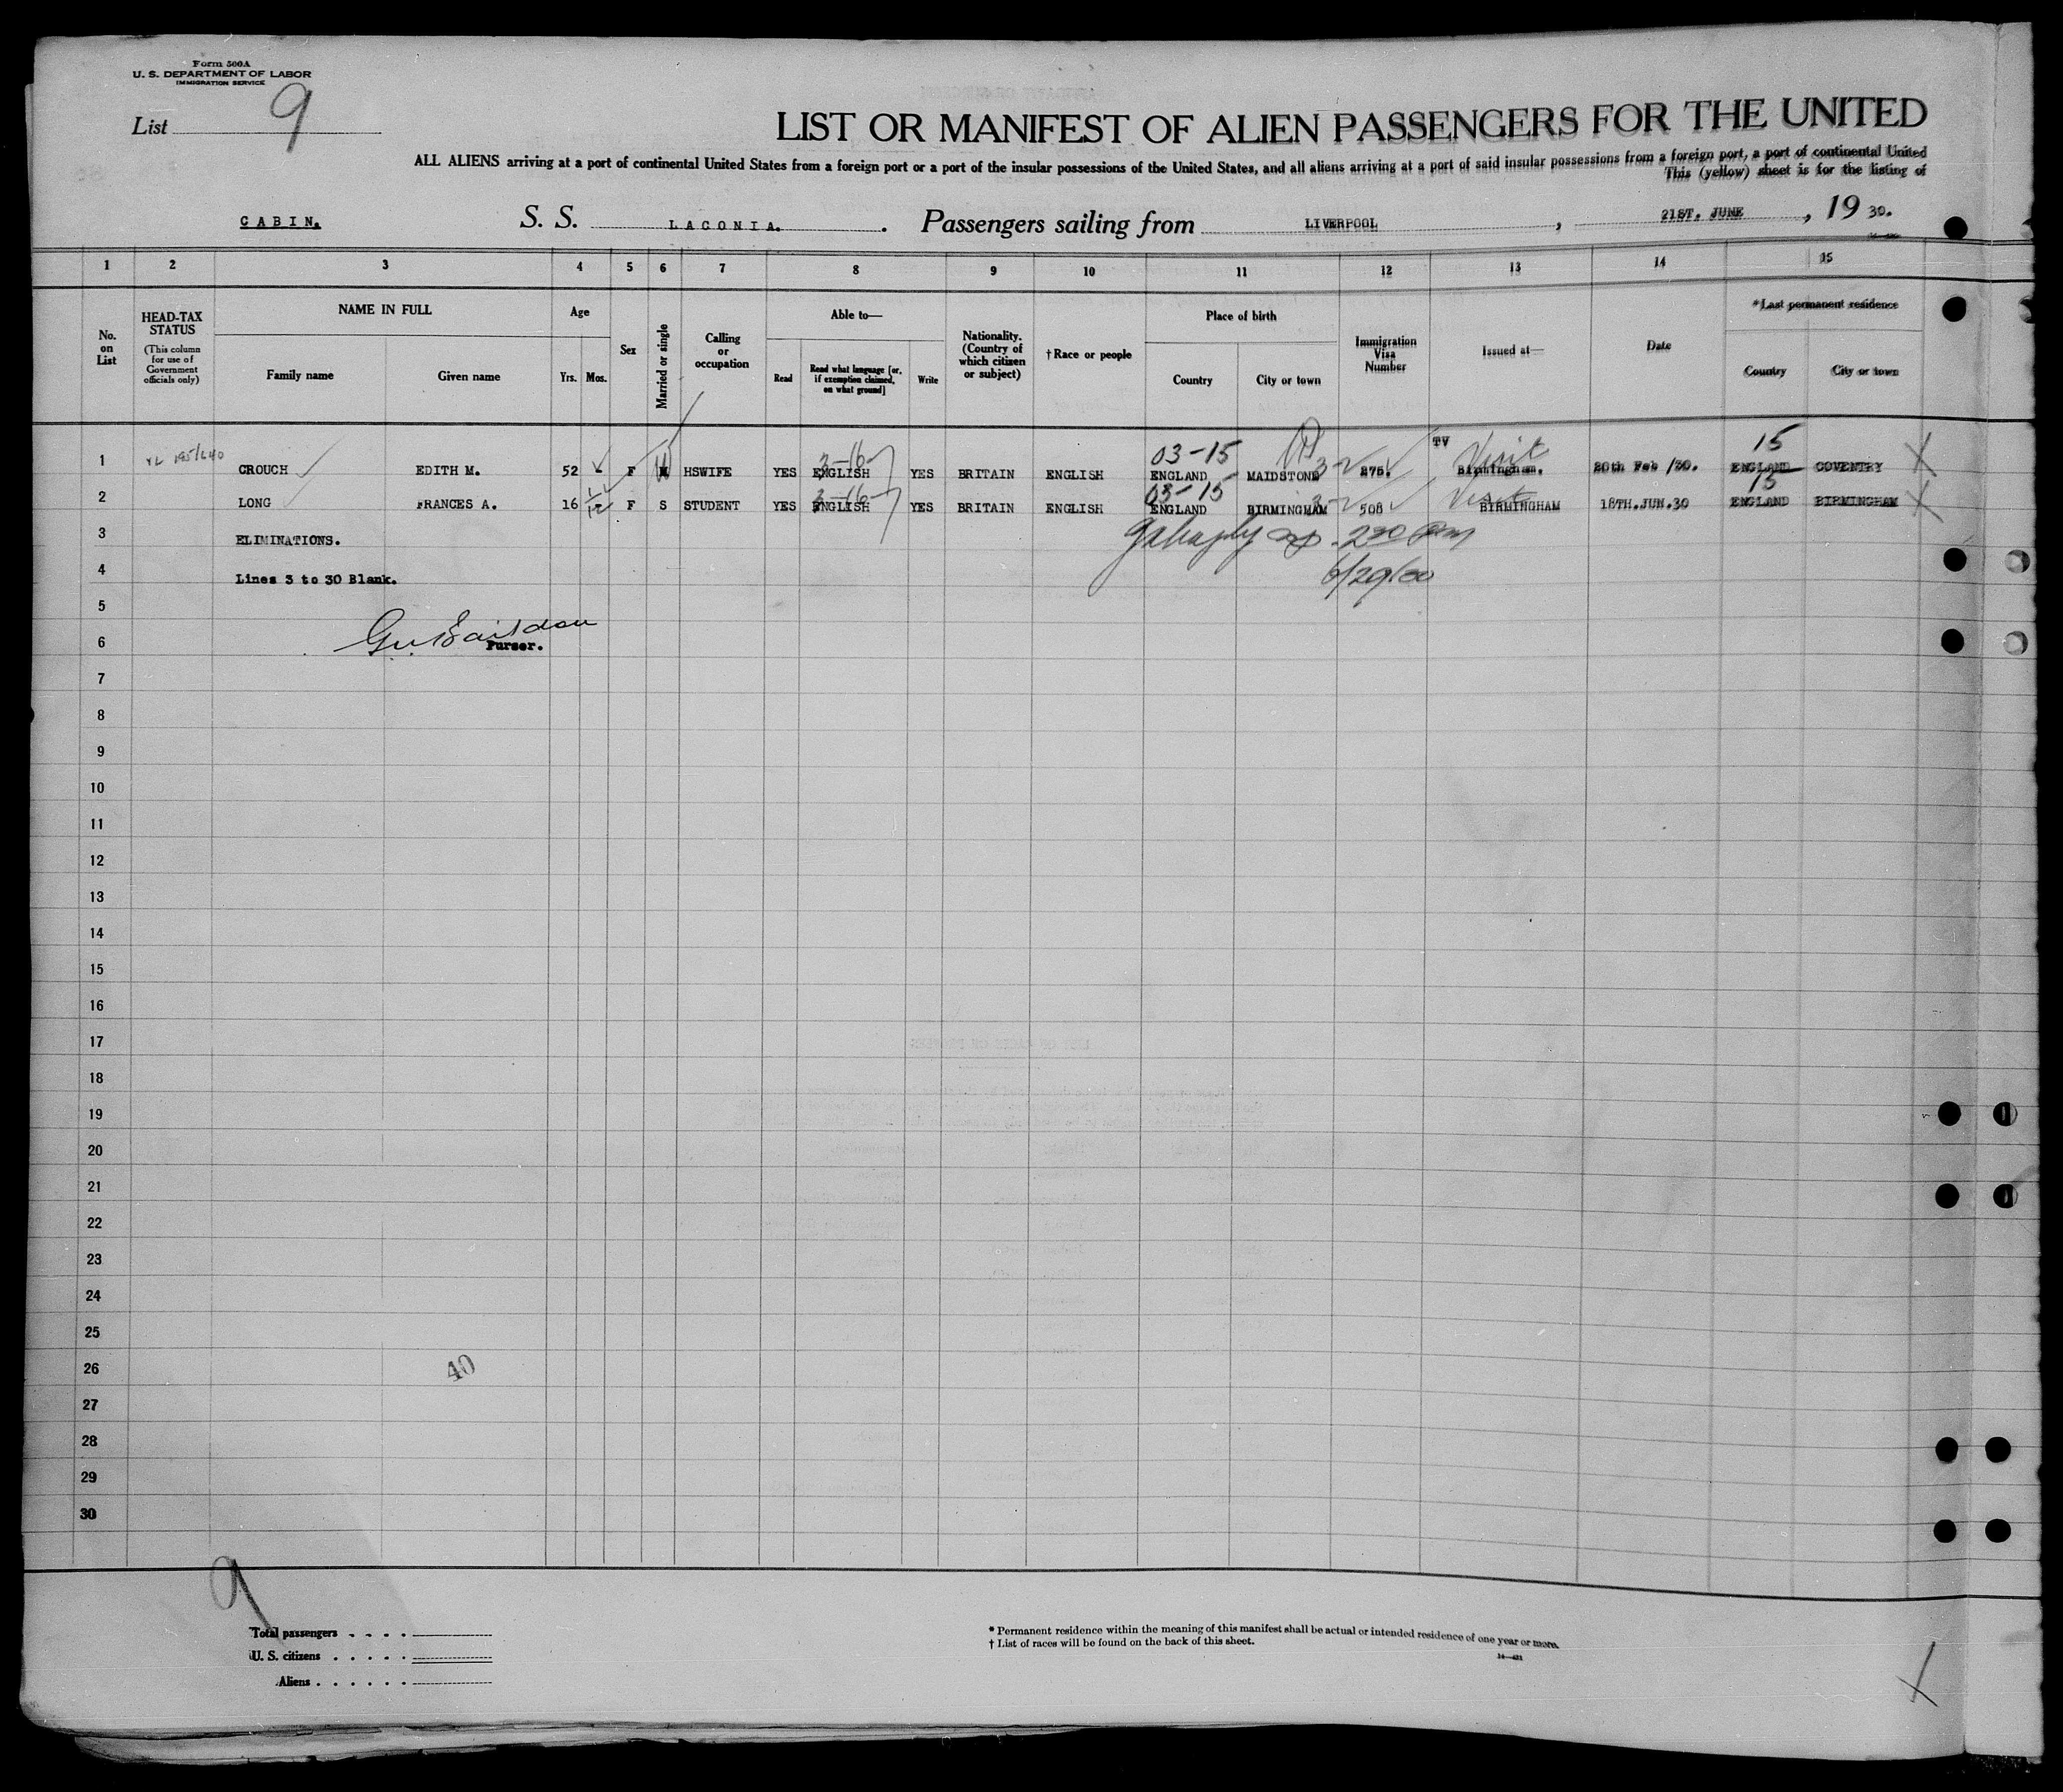 Form 500A
U. S. DEPARTMENT OF LABOR
IMMIGRATION SERVICE
List 9
LIST OR MANIFEST OF ALIEN PASSENGERS FOR THE UNITED
ALL ALIENS arriving at a port of continental United States from a foreign port or a port of the insular possessions of the United States, and all aliens arriving at a port of said insular possessions from a foreign port, a port of continental United
This (yellow) sheet is for the listing of
CABIN. S. S. LACONIA. Passengers sailing from LIVERPOOL, 21ST. JUNE, 19 30.
1 2 3 4 5 6 7 8 9 10 11 12 13 14 15
No. on List
HEAD-TAX STATUS
(This column for use of Government officials only)
NAME IN FULL
Family name Given name
Age
Yrs. Mos.
Sex
Married or single
Calling or occupation
Able to—
Read
Read what language [or, if exemption claimed, on what ground]
Write
Nationality. (Country of which citizen or subject)
† Race or people
Place of birth
Country City or town
Immigration Visa Number
Issued at—
Date
*Last permanent residence
Country City or town
03-15 TV Visit 15
1 CROUCH EDITH M. 52 - F HSWIFE YES ENGLISH YES BRITAIN ENGLISH ENGLAND MAIDSTONE 275. Birmingham. 20th Feb /30. ENGLAND COVENTRY
3-16 03-15 Visit 15
2 LONG FRANCES A. 16 F S STUDENT YES ENGLISH YES BRITAIN ENGLISH ENGLAND BIRMINGHAM 508 BIRMINGHAM 18TH.JUN.30 ENGLAND BIRMINGHAM
3 ELIMINATIONS. 230 pm
4 Lines 3 to 30 Blank. 6/29/30
5
6 Purser.
7
8
9
10
11
12
13
14
15
16
17
18
19
20
21
22
23
24
25
26 40
27
28
29
30
9
Total passengers
U. S. citizens
Aliens
* Permanent residence within the meaning of this manifest shall be actual or intended residence of one year or more.
† List of races will be found on the back of this sheet.